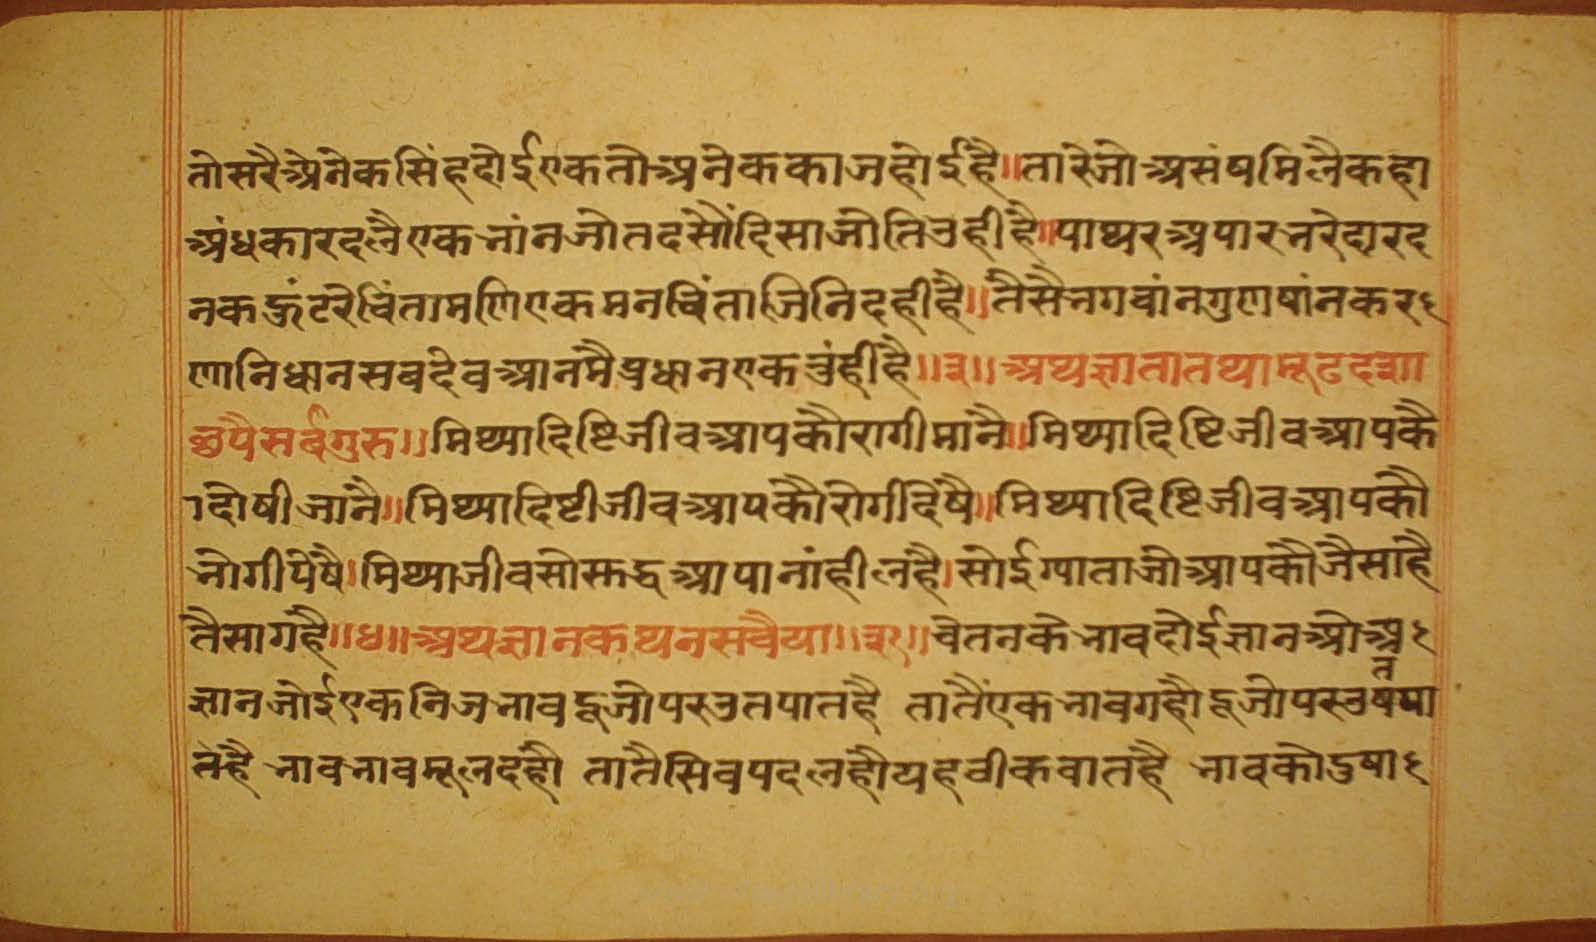 तोसरैअनेकसिंहहोईएकतौअनेककाजहोईहै॥तारेजोअसंषमिलैकहा
अंधकारदलैएकभांनजोतदसौंदिसाजोतिउहीहै॥पाथरअपारभरेदारद
नकहूंटरेचिंतामणिएकमनचिंताजिनिदहीहै॥तैसैभगवांनगुणषांनकर
णानिधानसबदेवआनमैप्रधानएकतुंहीहै॥३॥अथज्ञातातथामूढदशा
छपैसर्वगुरु॥मिथ्यादिष्टिजीवआपकौरागीमानै॥मिथ्यादिष्टिजीवआपकौ
दोषीजानै॥मिथ्यादिष्टीजीवआपकौरोगीदेषै॥मिथ्यादिष्टिजीवआपकौ
भोगीपेषै।मिथ्याजीवसोसुद्धआपानांहीलहै।सोईग्याताजोआपकौजैसाहै
तैसागहै॥४॥अथज्ञानकथनसवैया॥३१॥चेतनकेभावदोईज्ञानऔअ
ज्ञानजोईएकनिजभावदूजोपरउतपातहै तातैंएकभावगहौदूजोपरउतषपा
तहै भावभावमूलदहौ तातैसिवपदलहौयहवीकवातहै भावकोदुषा